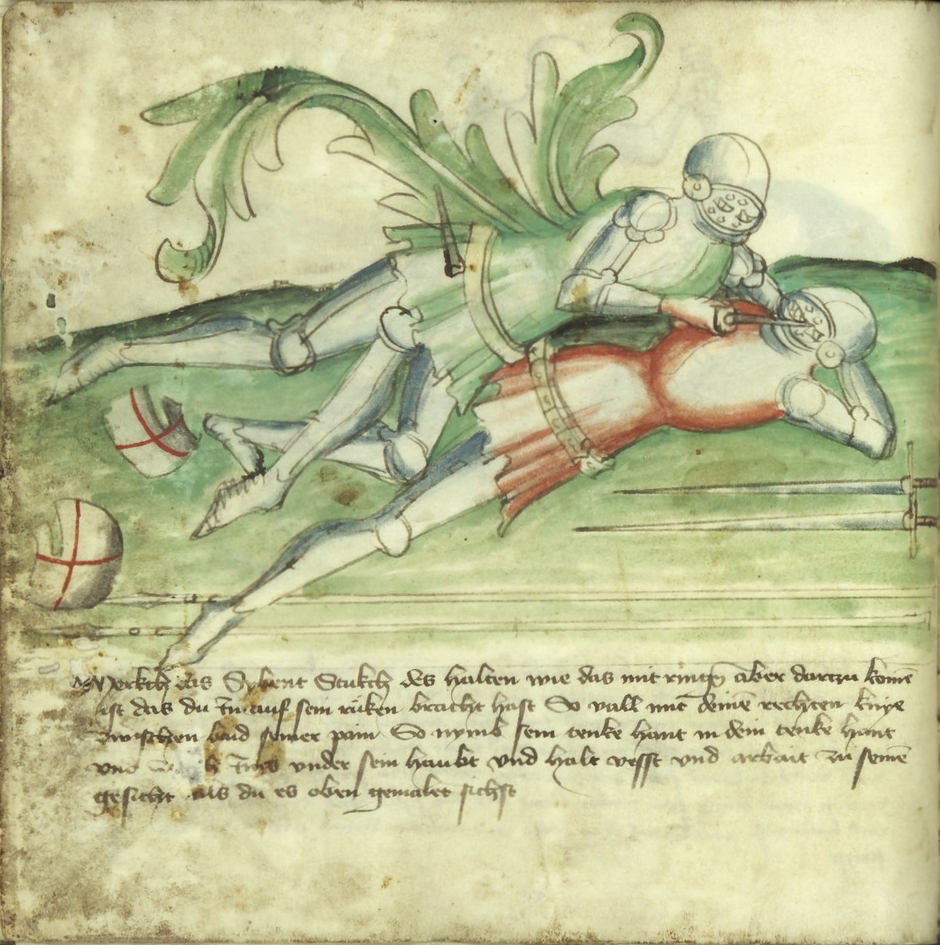 Merkch das Sybent Stukch des halten wie das mit ringn̄ aber darczu komē
ist das du in auf sein rüken bracht hast So vall mit deinē rechten knye
zwischen baid seiner pain So nymb sein tenke hant in dein tenke hant
vnd under sein haubt vnd halt vesst vnd arbait zu seinē
gesicht als du es oben gemalet sichst